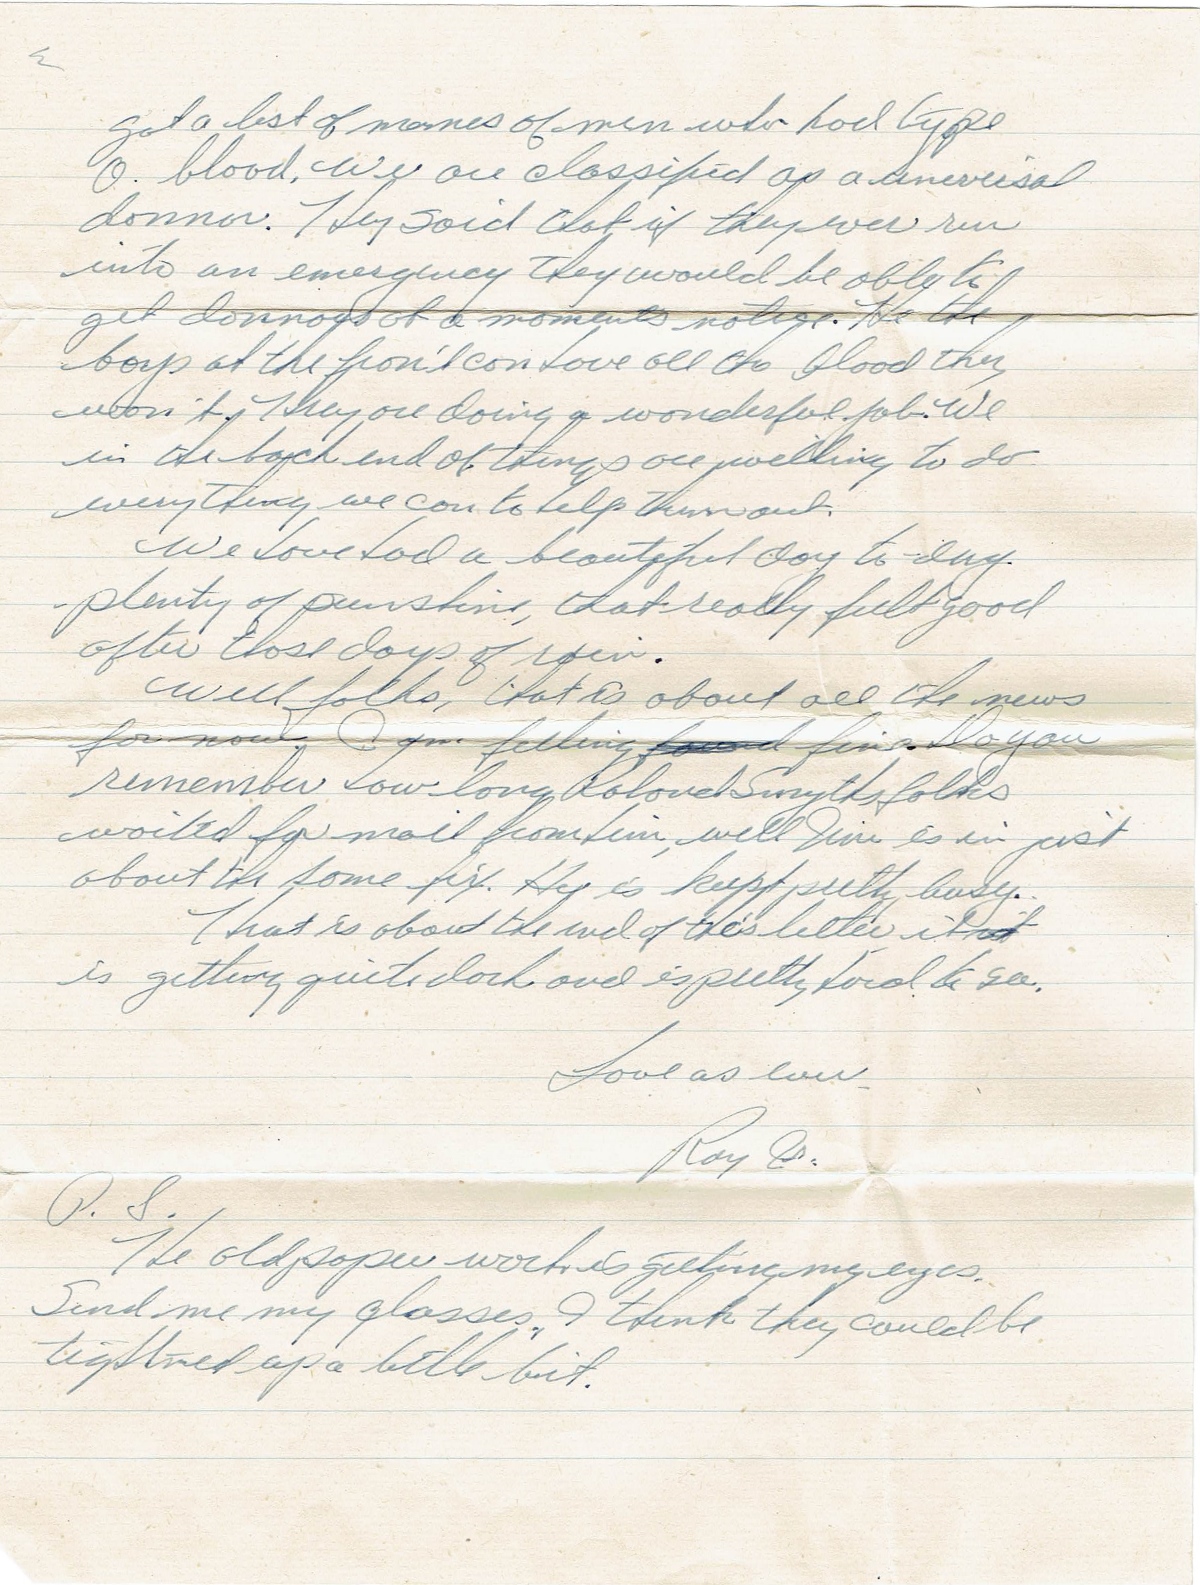 got a list of names of men who had type
O. blood. We are classified as a universal
donnor. They said that if they ever run
into an emergency they would be able to
get donnors at a moments notice. the
boys at the front can have all the blood they
want, They are doing a wonderful job. We
in the back end of things are willing to do
everything we can to help them out.
We have had a beautiful day to-day.
plenty of sunshine, that really felt good
after those days of rain.
Well folks, that is about all the news
for now. I am feeling fine. Do you
remember how long Roland Smyths folks
waited for mail from him, well Jim is in just
about the same fix. He is kept pretty busy.
That is about the end of this letter, it
is getting quite dark and is pretty hard to see.
Love as ever
Roy
P. S.
The old paper work is getting my eyes.
Send me my glasses, I think they could be
tightned up a little bit.